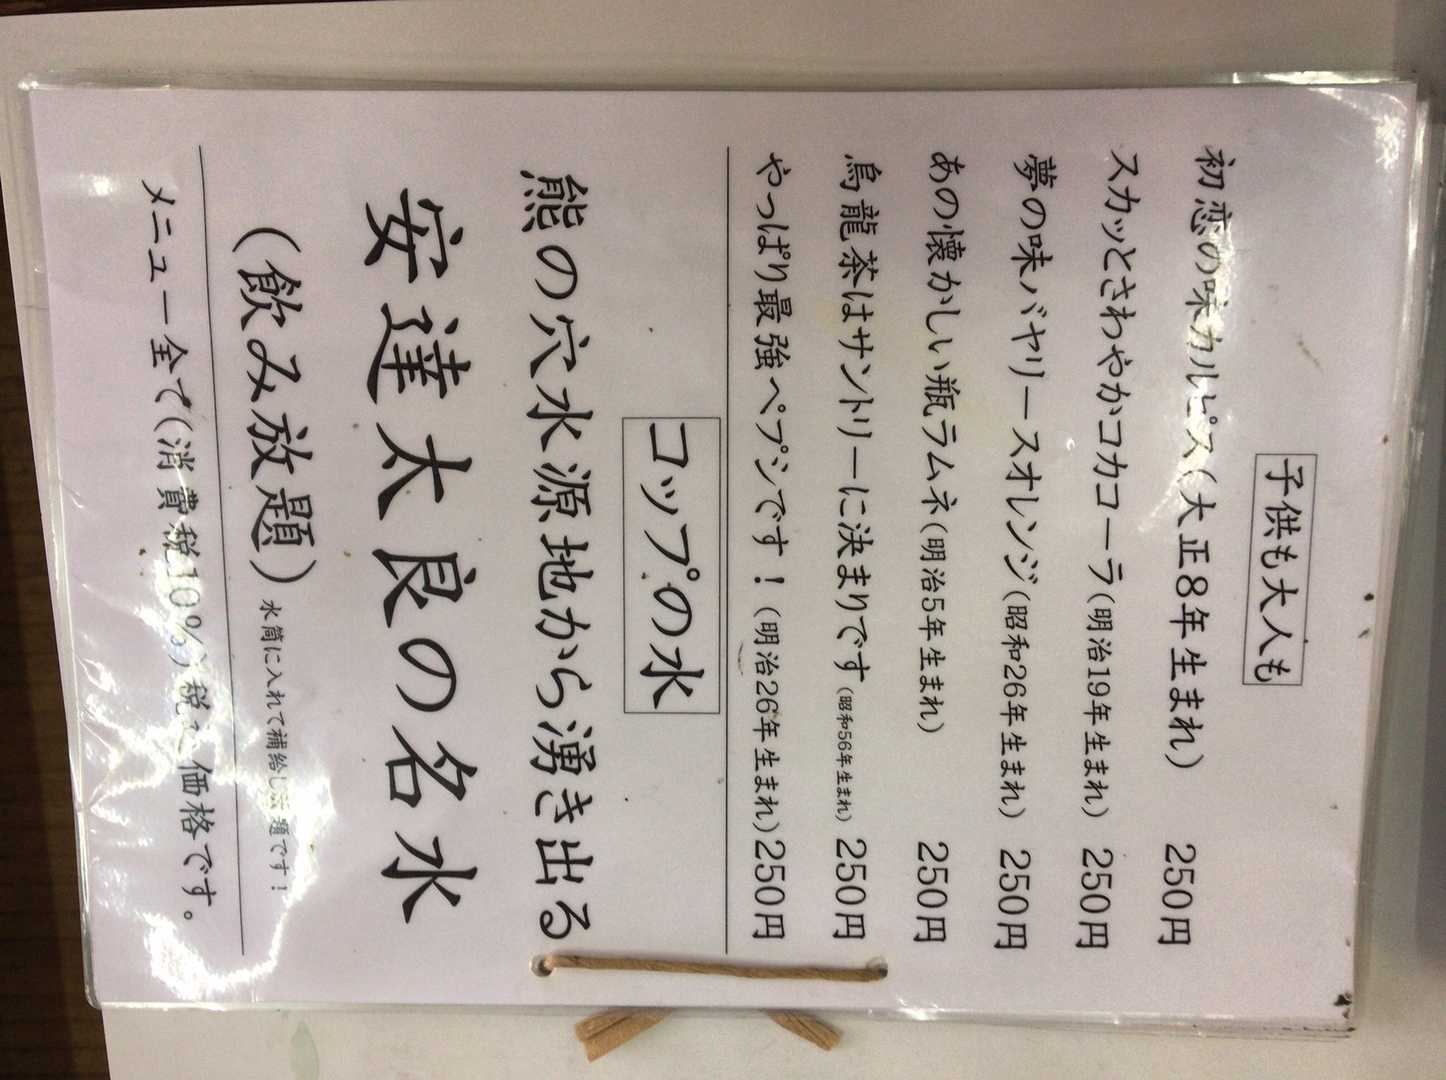 子供も大人も
初恋の味カルピス(大正8年生まれ) 250円
スカッとさわやかコカコーラ(明治19年生まれ) 250円
夢の味バヤリースオレンジ(昭和26年生まれ) 250円
あの懐かしい瓶ラムネ(明治5年生まれ) 250円
烏龍茶はサントリーに決まりです(昭和56年生まれ) 250円
やっぱり最強ペプシです!(明治26年生まれ)250円
コップの水
熊の穴水源地から湧き出る
安達太良の名水
(飲み放題)水筒に入れて補給し放題です!
メニュー全て(消費税10%)税込価格です。